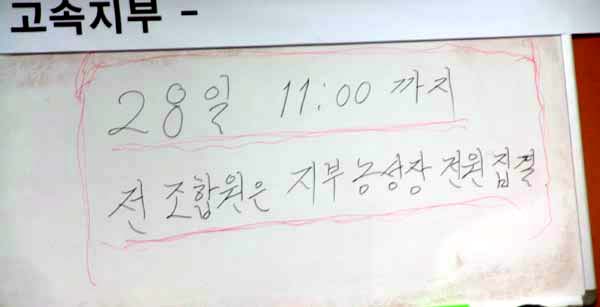 고속지부 -
28일 11:00 까지
전 조합원은 지부농성장 전원집결